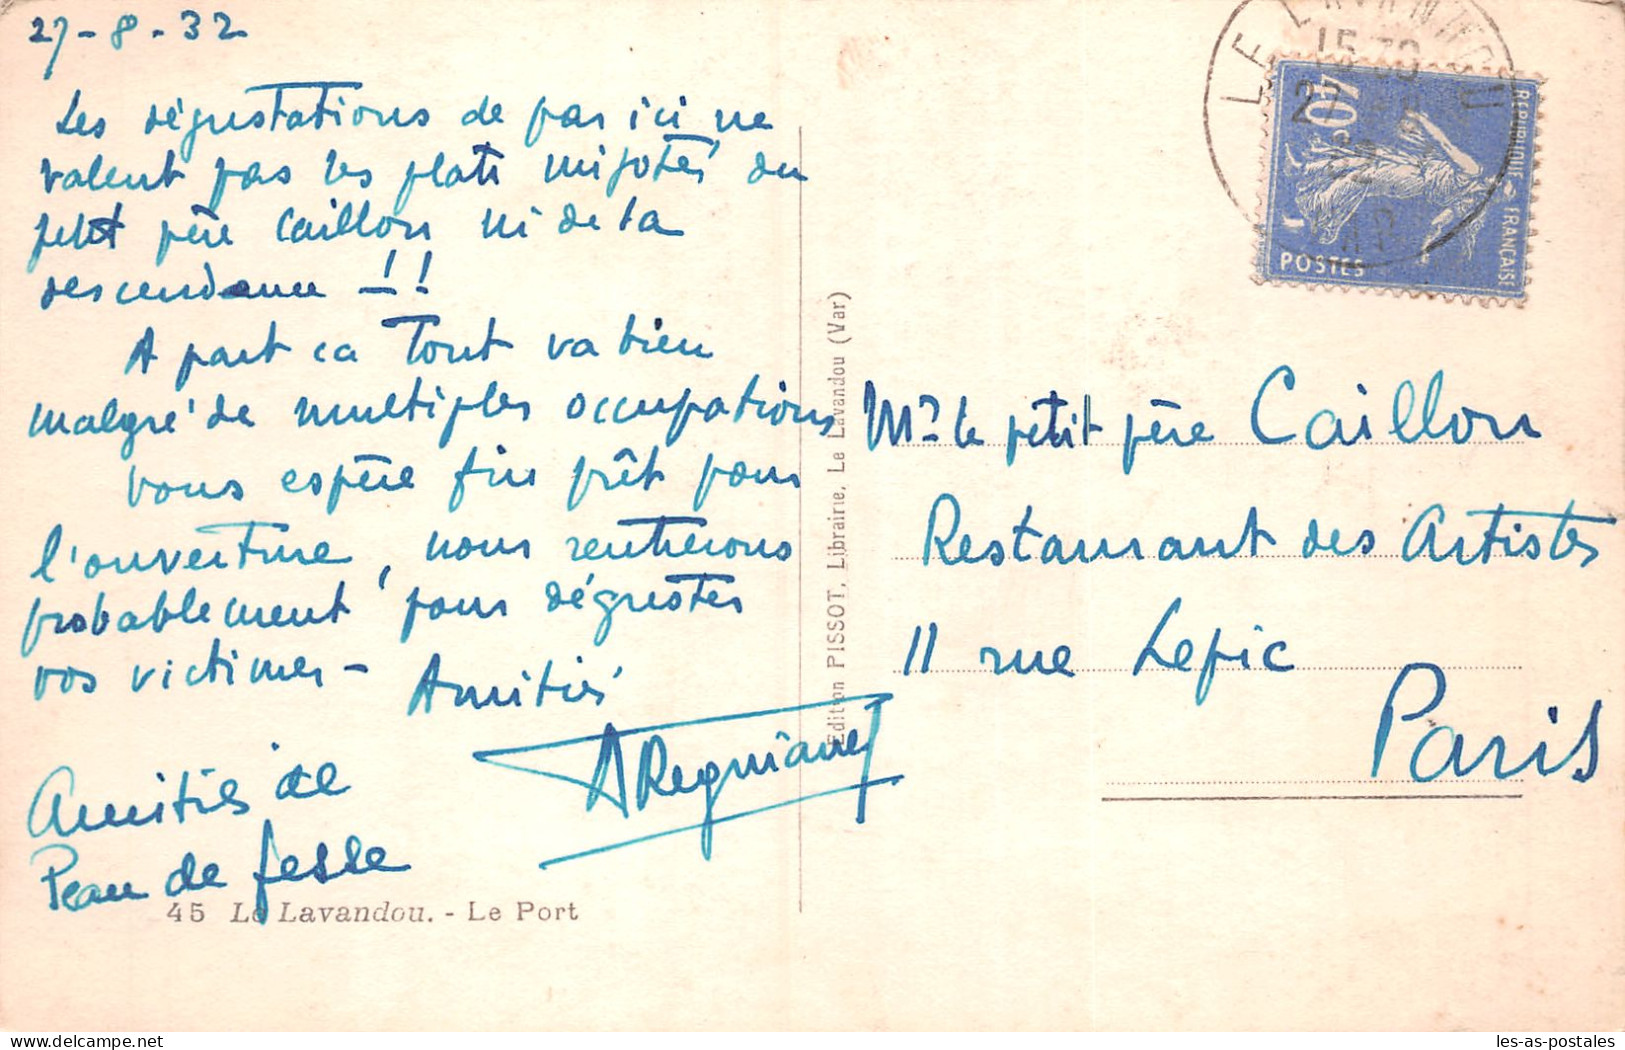 27-8-32
Les dégustations de par ici ne
valent pas les plats mijotés du
petit père Caillon ni de la
descendance !!
A part ca Tout va bien
malgré de multiples occupations
Vous espère fin prêt pour
l'ouverture, nous rentrerons
probablement pour déguster
vos victimes -
Amitiés
Amitiés de
Peau de fesse
45 Le Lavandou. - Le Port
Edition PISSOT, Librairie, Le Lavandou (Var)
LE LAVANDOU
15 30
27
VAR
40c
POSTES
REPUBLIQUE FRANÇAISE
Mr le petit père Caillon
Restaurant des Artistes
11 rue Lepic
Paris
les-as-postales
www.delcampe.net